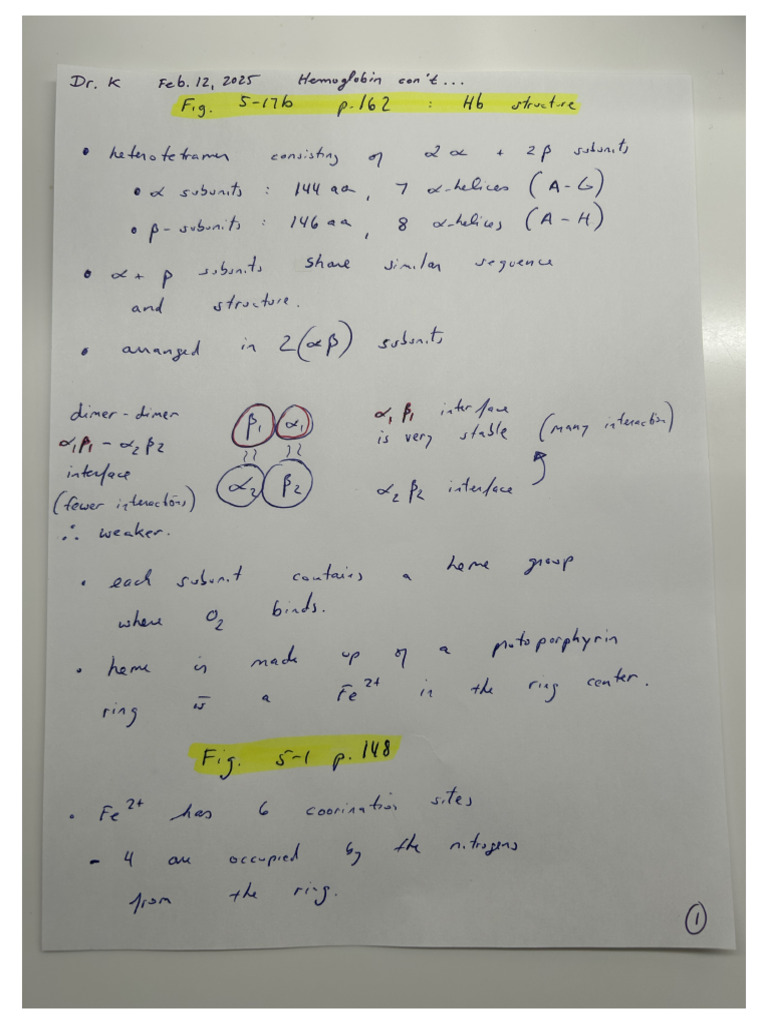 Dr. K Feb. 12, 2025 Hemoglobin con't...
Fig. 5-17b p.162 : Hb structure
• heterotetramer consisting of 2α + 2β subunits
• α subunits : 144 aa, 7 α-helices (A-G)
• β-subunits : 146 aa, 8 α-helices (A-H)
• α + β subunits share similar sequence
and structure.
• arranged in 2(αβ) subunits
dimer-dimer
α₁β₁ - α₂β₂
interface
(fewer interactions)
∴ weaker.
β₁ α₁
α₂ β₂
α₁ β₁ interface
is very stable (many interaction)
α₂ β₂ interface
• each subunit contains a heme group
where O₂ binds.
• heme is made up of a protoporphyrin
ring w̄ a Fe²⁺ in the ring center.
Fig. 5-1 p.148
• Fe²⁺ has 6 coorination sites
- 4 are occupied by the nitrogens
from the ring.
1